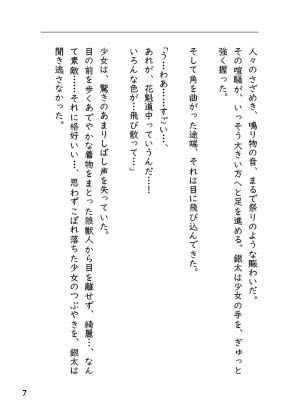 人々のさざめき、鳴り物の音、まるで祭りのような賑わいだ。
その喧騒が、いっそう大きい方へと足を進める。銀太は少女の手を、ぎゅっと
強く握った。
そして角を曲がった途端、それは目に飛び込んできた。
「う…わあ……すごい…、
あれが、花魁道中っていうんだ…！
いろんな色が…飛び散って…」
少女は、驚きのあまりしばし声を失っていた。
目の前を歩くあでやかな着物をまとった狼獣人から目を離せず、綺麗…、なん
て素敵……それに格好いい…、思わずこぼれ落ちた少女のつぶやきを、銀太は
聞き逃さなかった。
7